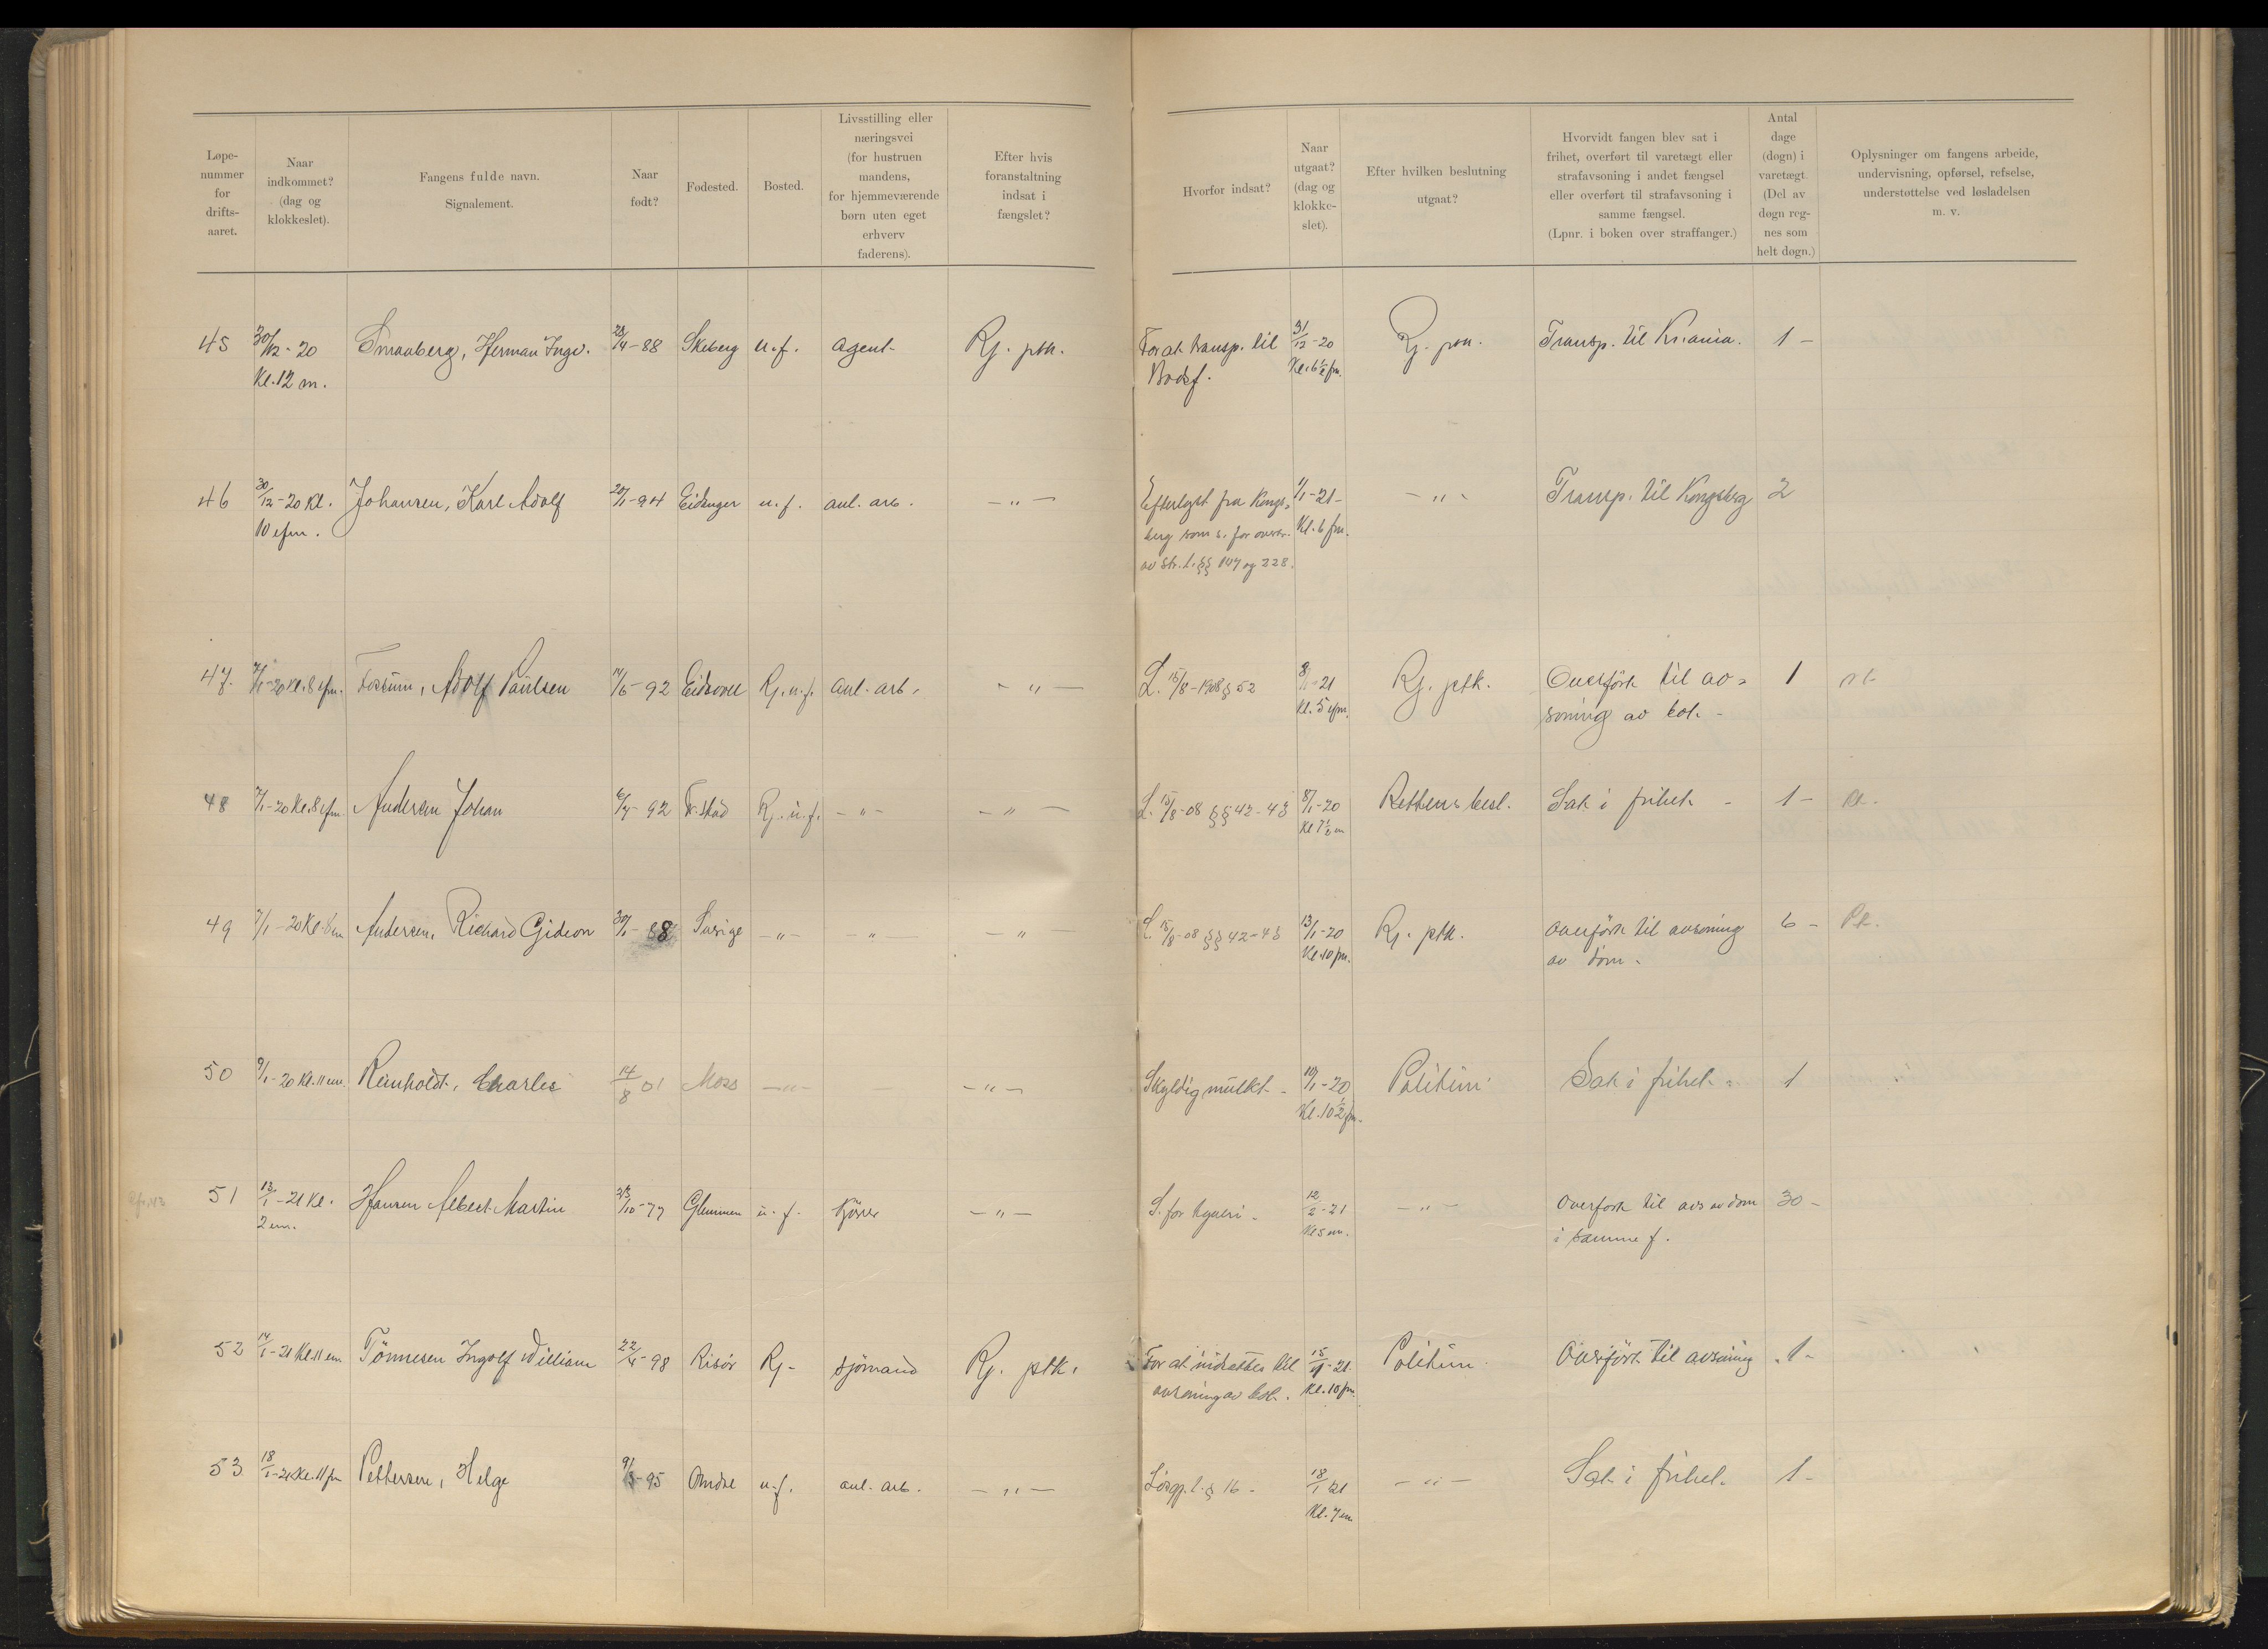 Løpe-
nummer
for
drifts-
aaret.
Naar
indkommet?
(dag og
klokkeslet).
Fangens fulde navn.
Signalement.
Naar
født?
Fødested.
Bosted.
Livsstilling eller
næringsvei
(for hustruen
mandens,
for hjemmeværende
børn uten eget
erhverv
faderens).
Efter hvis
foranstaltning
indsat i
fængslet?
Hvorfor indsat?
Naar
utgaat?
(dag og
klokke-
slet).
Efter hvilken beslutning
utgaat?
Hvorvidt fangen blev sat i
frihet, overført til varetægt eller
strafavsoning i andet fængsel
eller overført til strafavsoning i
samme fængsel.
(Lpnr. i boken over straffanger.)
Antal
dage
(døgn) i
varetægt.
(Del av
døgn reg-
nes som
helt døgn.)
Oplysninger om fangens arbeide,
undervisning, opførsel, refselse,
understøttelse ved løsladelsen
m. v.
45 30/12-20 Smaaberg, Herman Ingv. /4-88 Skeberg u.f. agent- Rj. ptk. For at transp. til 31/12-20 Rj. Transp. til Kr.ania. 1-
Kl.12 m. Bodsf. Kl.6½fm.
46 30/12-20 Kl. Johansen, Karl Adolf 20/1-94 Eidanger u.f. anl. arb. -"- Efterlyst fra Kongs- 1/1-21- -"- Transp. til Kongsberg 2
10 efm. berg som s. for overtr. Kl.6 fm.
av Str.l. §§ og 228.
47. 7/1-20 Kl.8 efm. Fossum, Adolf Paulsen /6-92 Eidsvoll Rj.u.f. anl. arb. -"- L. 15/8-1908 § 52 8/1-21 Rj. ptk. Overført til av- 1
Kl. 5 efm. soning av bot. -
48 7/1-20 Kl.8 efm. Andersen Johan 92 Fr.stad Rj.u.f. -"- -"- L. 15/8-08 §§ 42-43 8/1-20 Rettens besl. Sat i frihet - 1-
Kl 7½ m
49 7/1-20 Kl. Andersen, Richard Gideon 30/1-88 Sverige -"- -"- -"- L. 15/8-08 §§ 42-43 13/1-20 Rj. ptk. Overført til avsoning 6-
Kl.10 fm. av dom.
50 9/1-20 Kl.11 em. Reinholdt, Charles 14/8 01 Moss -"- -"- Skyldig mulkt. - 10/1-20 Politiets Sat i frihet. 1
Kl.10½fm.
51 13/1-21 Kl. Hansen Albert Martin /10-77 Glemmen u.f. kjører -"- S. for tyveri. 12/2-21 -"- Overført til avs av dom 30-
2 em. Kl 5 em. i samme f.
52 14/1-21 Kl.11 em Tønnesen Ingolf William 22/4-98 Risør Rj- sjømand Rj. ptk. For at indsættes til 15/1-21 Politiets Overført til avsoning 1-
avsoning av bot. Kl.10 fm.
53 18/1-21 Kl.11 fm Pettersen, Helge 95 Onsø u.f. anl. arb. -"- Løsgj.l. § 16- 18/1 21 -"- Sat i frihet. 1-
Kl.7 em